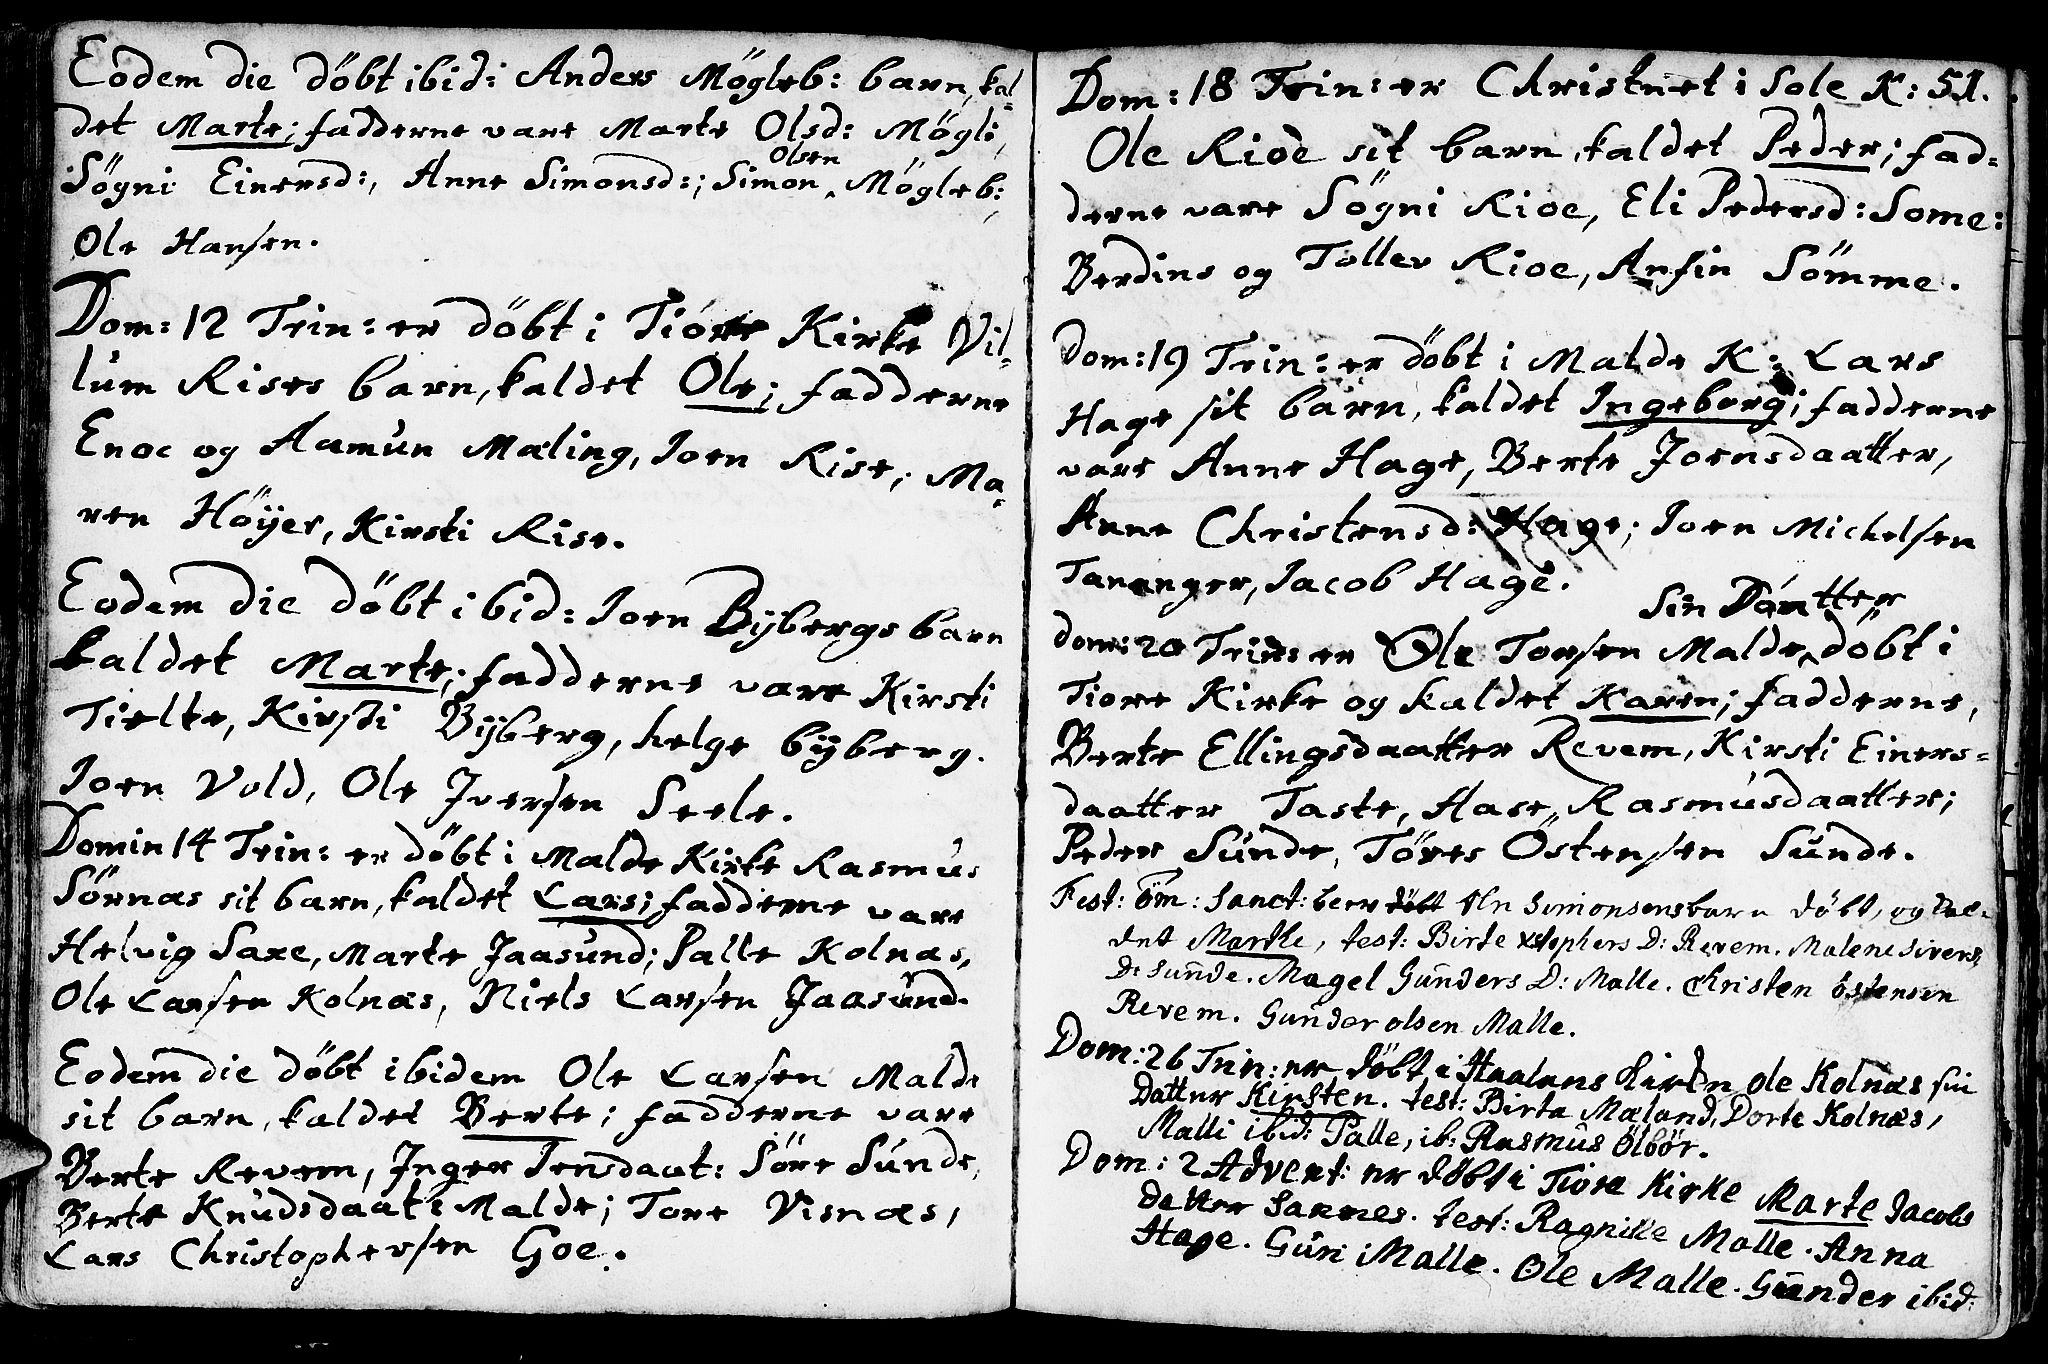 Eodem die döbt ibid: Anders Mögleb: barn, kal-
det Marte; fadderne vare Marte Olsd: Mögli,
Olsen
Sögni Einersd:, Anne Simonsd:; Simon ‸ Mögleb:,
Ole Hansen.
Dom: 12 Trin: er döbt i Tiore Kirke Vil-
lum Rises barn, kaldet Ole; fadderne
Enoc og Aamun Mæling, Joen Rise, Ma-
ren Höyer, Kirsti Rise.
Eodem die döbt ibid: Joen Bÿbergs barn
kaldet Marte; fadderne vare Kirsti
Tielte, Kirsti Bÿberg, helge bÿberg.
Joen Vold, Ole Iversen Seele.
Domin 14 Trin: er döbt i Malde Kirke Rasmus
Sörnæs sit barn, kaldet Lars; fadderne vare
Helvig Saxe, Marte Jaasund; Palle Kolnæs,
Ole Larsen Kolnæs, Niels Larsen Jaasund.
Eodem die döbt ibidem Ole Larsen Malde
sit barn, kaldet Berte; fadderne vare
Berte Revem, Inger Jensdaat: Söre Sunde,
Berte Knudsdaat: Malde; Tore Visnæs,
Lars Christophersen Goe.
Dom: 18 Trin: er Christnet i Sole K: 51.
Ole Rioe sit barn, kaldet Peder; fad-
derne vare Sögni Rioe, Eli Pedersd: Some:
Berdins og Tollev Rioe, Anfin Sömme.
Dom: 19 Trin: er döbt i Malde K: Lars
Hage sit barn, kaldet Ingeborg; fadderne
vare Anne Hage, Berte Joensdaatter,
Anne Christensd: Hage; Joen Michelsen
Tananger, Jacob Hage.
sin Daatter
dom: 20 Trin: er Ole Torsen Malde ‸ döbt i
Tiore Kirke og kaldet Karen; fadderne,
Berte Ellingsdaatter Revem, Kirsti Einers-
daatter Taste, Hase Rasmusdaatter;
Peder Sunde, Töres Östensen Sunde.
Fest: Om: Sanct: blev Simonsens barn döbt, og kal-
det Marthe, test: Birte xstophers D: Revem. Malene Sivers
D: Sunde. Magel Gunders D: Malle. Christen östensen
Revem. Gunder olsen Malle.
Dom: 26 Trin: er döbt i Haalans Kirke Ole Kolnæs sin
Datter Kirsten. test: Birta Mæland, Dorte Kolnæs,
Malli ibid: Palle, ib: Rasmus Ölbör.
Dom: 2 Advent: er döbt i Tiore Kirke Marte Jacobs
datter Sannes. test: Ragnille Malle. Anna
Hage. Guri Malle. Ole Malle. Gunder ibid: